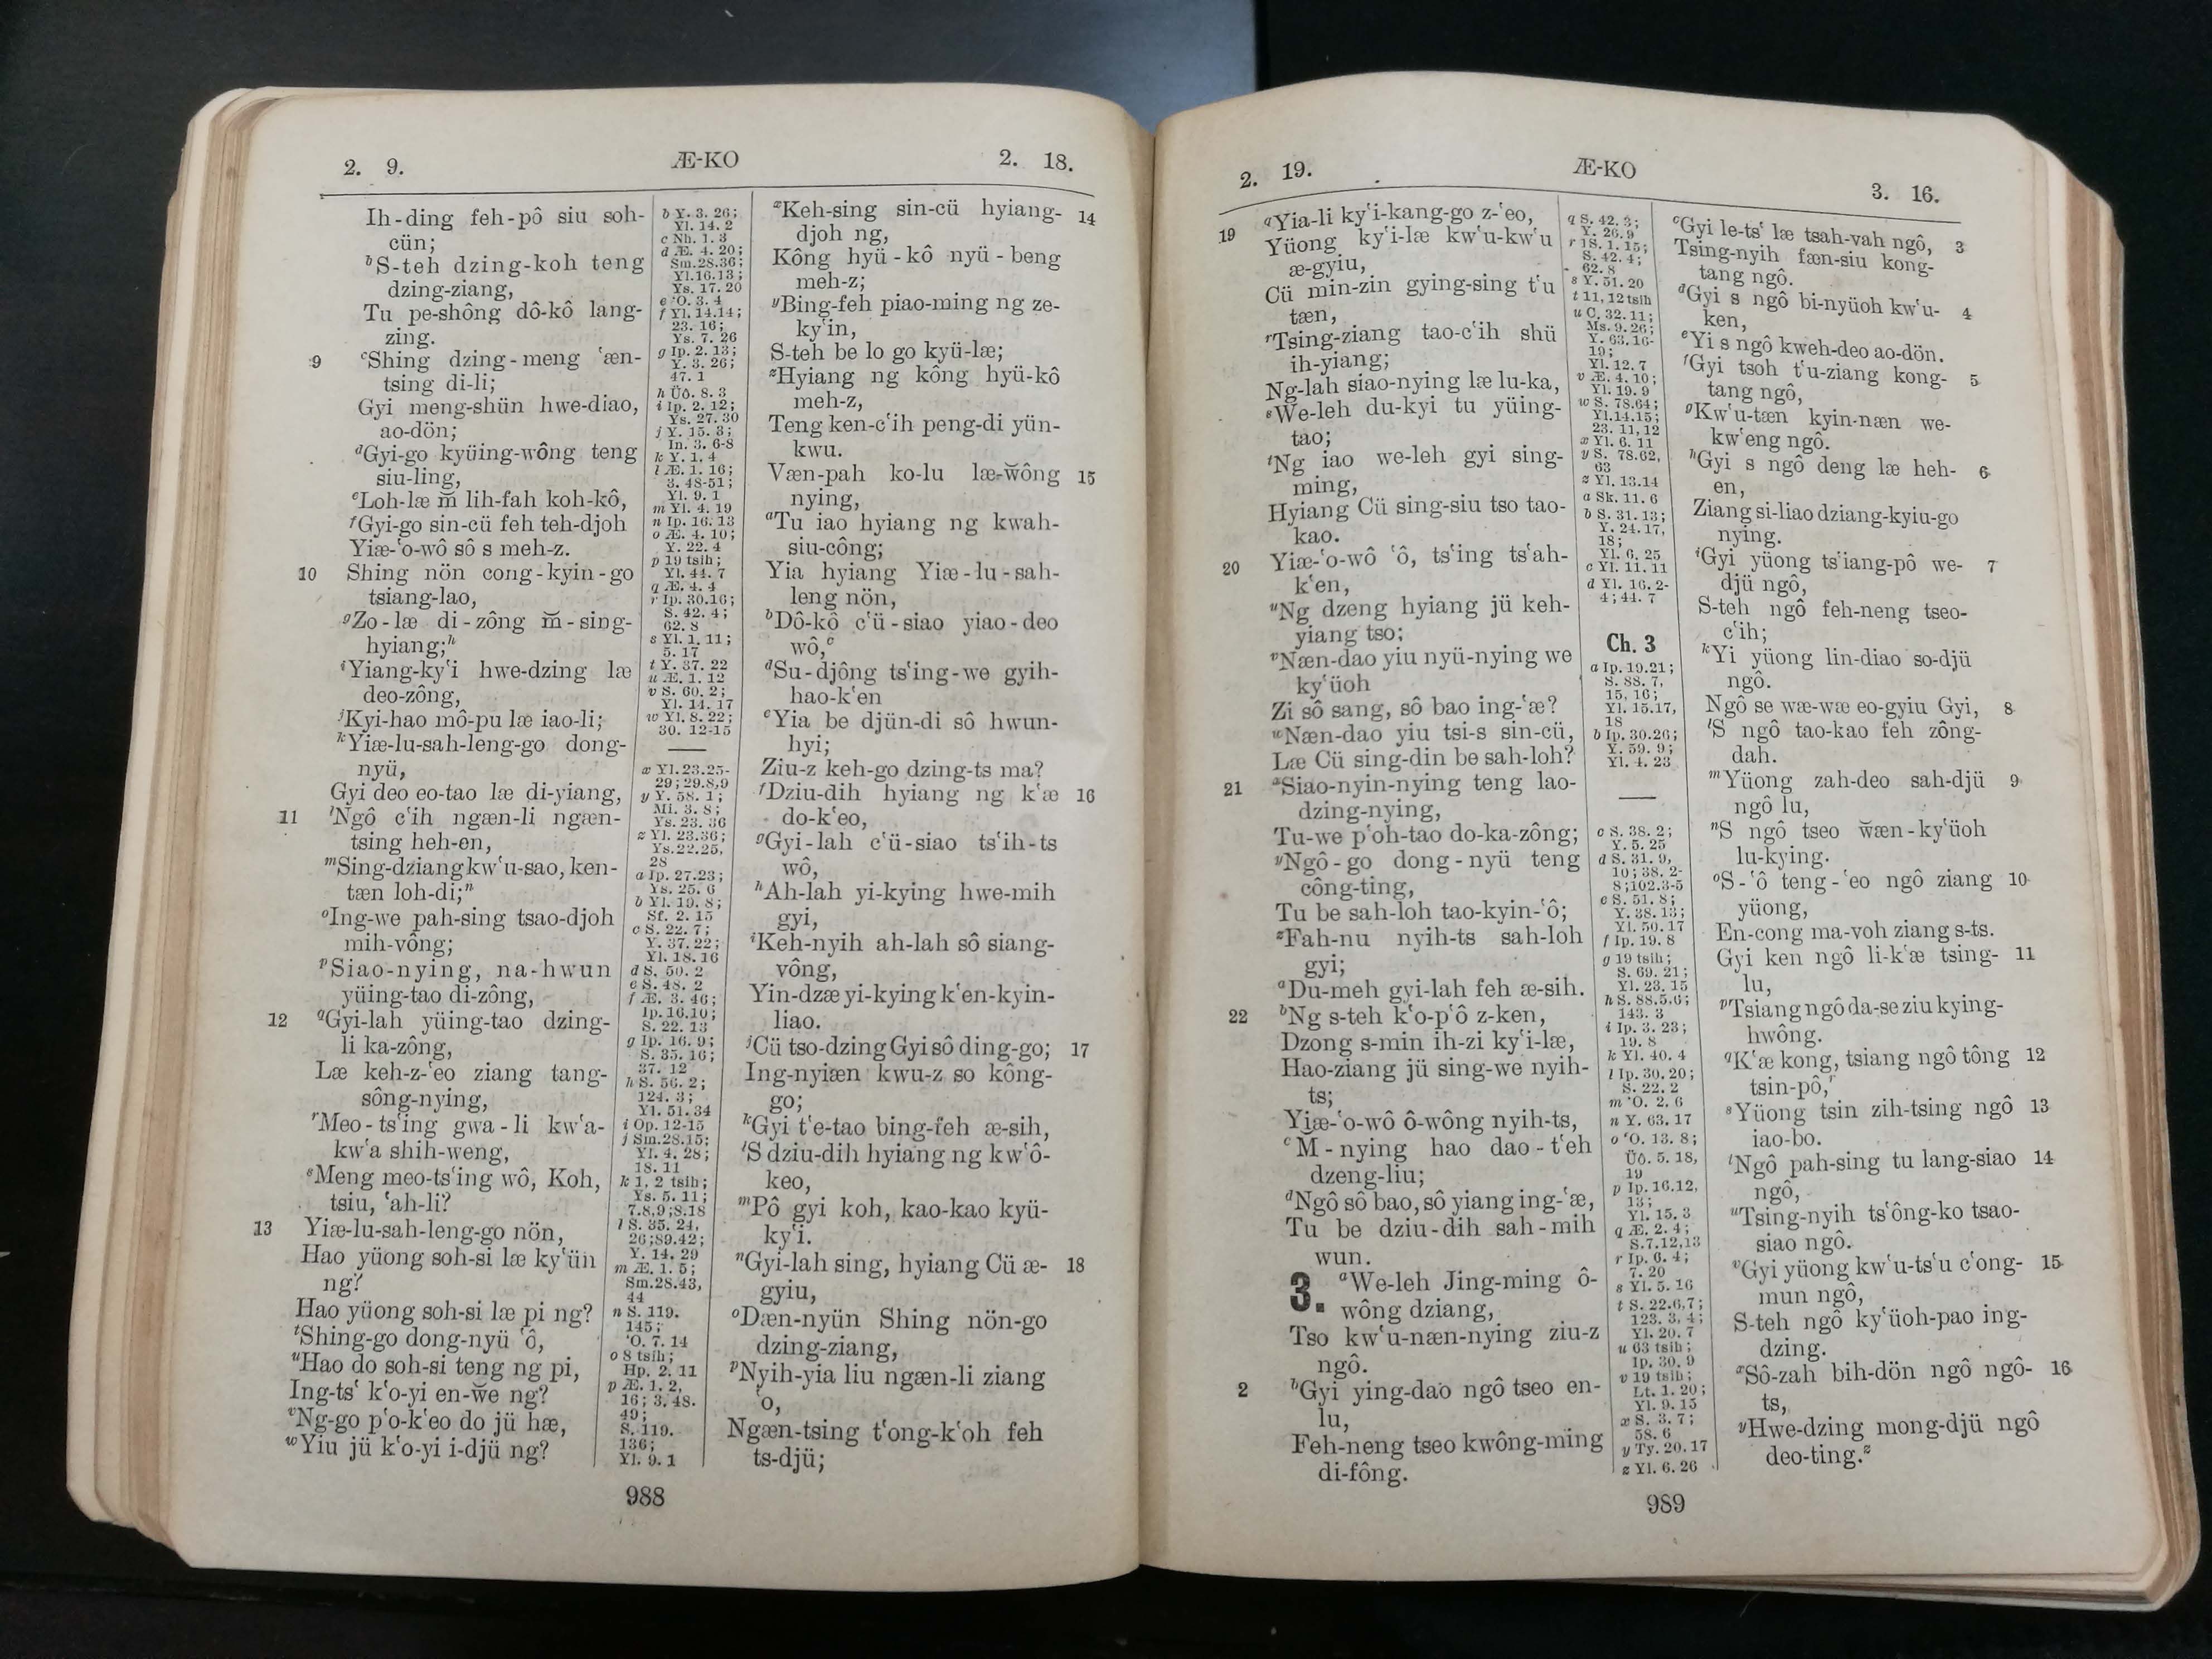 2. 9. Æ-KO 2. 18.
Ih-ding feh-pô siu soh-
cün;
bS-teh dzing-koh teng
dzing-ziang,
Tu pe-shông dô-kô lang-
zing.
9 cShing dzing-meng ʻæn-
tsing di-li;
Gyi meng-shün hwe-diao,
ao-dön;
dGyi-go kyüing-wông teng
siu-ling,
eLoh-læ m̆ lih-fah koh-kô,
fGyi-go sin-cü feh teh-djoh
Yiæ-ʻo-wô sô s meh-z.
10 Shing nön cong-kyin-go
tsiang-lao,
gZo-læ di-zông m̆-sing-
hyiang;h
iYiang-kyʻi hwe-dzing læ
deo-zông,
jKyi-hao mô-pu læ iao-li;
kYiæ-lu-sah-leng-go dong-
nyü,
Gyi deo eo-tao læ di-yiang,
11 lNgô cʻih ngæn-li ngæn-
tsing heh-en,
mSing-dziang kwʻu-sao, ken-
tæn loh-di;n
oIng-we pah-sing tsao-djoh
mih-vông;
pSiao-nying, na-hwun
yüing-tao di-zông,
12 qGyi-lah yüing-tao dzing-
li ka-zông,
Læ keh-z-ʻeo ziang tang-
sông-nying,
rMeo-tsʻing gwa-li kwʻa-
kwʻa shih-weng,
sMeng meo-tsʻing wô, Koh,
tsiu, ʻah-li?
13 Yiæ-lu-sah-leng-go nön,
Hao yüong soh-si læ kyʻün
ng?
Hao yüong soh-si læ pi ng?
tShing-go dong-nyü ʻô,
uHao do soh-si teng ng pi,
Ing-tsʻ kʻo-yi en-w̆e ng?
vNg-go pʻo-kʻeo do jü hæ,
wYiu jü kʻo-yi i-djü ng?
b Y. 3. 26;
Yl. 14. 2
c Nh. 1. 3
d Æ. 4. 20;
Sm.28.36;
Yl.16.13;
Ys. 17. 20
e ʻO. 3. 4
f Yl. 14.14;
23. 16;
Ys. 7. 26
g Ip. 2. 13;
Y. 3. 26;
47. 1
h Üô. 8. 3
i Ip. 2. 12;
Ys. 27. 30
j Y. 15. 3;
In. 3. 6-8
k Y. 1. 4
l Æ. 1. 16;
3. 48-51;
Yl. 9. 1
m Yl. 4. 19
n Ip. 16. 13
o Æ. 4. 10;
Y. 22. 4
p 19 tsih;
Yl. 44. 7
q Æ. 4. 4
r Ip. 30.16;
S. 42. 4;
62. 8
s Yl. 1. 11;
5. 17
t Y. 37. 22
u Æ. 1. 12
v S. 60. 2;
Yl. 14. 17
w Yl. 8. 22;
30. 12-15
x Yl.23.25-
29;29.8,9
y Y. 58. 1;
Mi. 3. 8;
Ys. 23. 36
z Yl. 23.36;
Ys.22.25,
28
a Ip. 27.23;
Ys. 25. 6
b Yl. 19. 8;
Sf. 2. 15
c S. 22. 7;
Y. 37. 22;
Yl. 18. 16
d S. 50. 2
e S. 48. 2
f Æ. 3. 46;
Ip.16.10;
S. 22. 13
g Ip. 16. 9;
S. 35. 16;
37. 12
h S. 56. 2;
124. 3;
Yl. 51. 34
i Op. 12-15
j Sm.28.15;
Yl. 4. 28;
18. 11
k 1, 2 tsih;
Ys. 5. 11;
7.8,9;8.18
l S. 35. 24,
26;89.42;
Y. 14. 29
m Æ. 1. 5;
Sm.28.43,
44
n S. 119.
145;
ʻO. 7. 14
o 8 tsih;
Hp. 2. 11
p Æ. 1. 2,
16; 3. 48.
49;
S. 119.
136;
Yl. 9. 1
xKeh-sing sin-cü hyiang- 14
djoh ng,
Kông hyü-kô nyü-beng
meh-z;
yBing-feh piao-ming ng ze-
kyʻin,
S-teh be lo go kyü-læ;
zHyiang ng kông hyü-kô
meh-z,
Teng ken-cʻih peng-di yün-
kwu.
Væn-pah ko-lu læ-w̆ông 15
nying,
aTu iao hyiang ng kwah-
siu-công;
Yia hyiang Yiæ-lu-sah-
leng nön,
bDô-kô cʻü-siao yiao-deo
wô,c
dSu-djông tsʻing-we gyih-
hao-kʻen
eYia be djün-di sô hwun-
hyi;
Ziu-z keh-go dzing-ts ma?
fDziu-dih hyiang ng kʻæ 16
do-kʻeo,
gGyi-lah cʻü-siao tsʻih-ts
wô,
hAh-lah yi-kying hwe-mih
gyi,
iKeh-nyih ah-lah sô siang-
vông,
Yin-dzæ yi-kying kʻen-kyin-
liao.
jCü tso-dzing Gyi sô ding-go; 17
Ing-nyiæn kwu-z so kông-
go;
kGyi tʻe-tao bing-feh æ-sih,
lS dziu-dih hyiang ng kwʻô-
keo,
mPô gyi koh, kao-kao kyü-
kyʻi.
nGyi-lah sing, hyiang Cü æ- 18
gyiu,
oDæn-nyün Shing nön-go
dzing-ziang,
pNyih-yia liu ngæn-li ziang
ʻo,
Ngæn-tsing tʻong-kʻoh feh
ts-djü;
988
2. 19. Æ-KO 3. 16.
19 qYia-li kyʻi-kang-go z-ʻeo,
Yüong kyʻi-læ kwʻu-kwʻu
æ-gyiu,
Cü min-zin gying-sing tʻu
tæn,
rTsing-ziang tao-cʻih shü
ih-yiang;
Ng-lah siao-nying læ lu-ka,
sWe-leh du-kyi tu yüing-
tao;
tNg iao we-leh gyi sing-
ming,
Hyiang Cü sing-siu tso tao-
kao.
20 Yiæ-ʻo-wô ʻô, tsʻing tsʻah-
kʻen,
uNg dzeng hyiang jü keh-
yiang tso;
vNæn-dao yiu nyü-nying we
kyʻüoh
Zi sô sang, sô bao ing-ʻæ?
wNæn-dao yiu tsi-s sin-cü,
Læ Cü sing-din be sah-loh?
21 xSiao-nyin-nying teng lao-
dzing-nying,
Tu-we pʻoh-tao do-ka-zông;
yNgô-go dong-nyü teng
công-ting,
Tu be sah-loh tao-kyin-ʻô;
zFah-nu nyih-ts sah-loh
gyi;
aDu-meh gyi-lah feh æ-sih.
22 bNg s-teh kʻo-pʻô z-ken,
Dzong s-min ih-zi kyʻi-læ,
Hao-ziang jü sing-we nyih-
ts;
Yiæ-ʻo-wô ô-wông nyih-ts,
cM̆-nying hao dao-tʻeh
dzeng-liu;
dNgô sô bao, sô yiang ing-ʻæ,
Tu be dziu-dih sah-mih
wun.
3. aWe-leh Jing-ming ô-
wông dziang,
Tso kwʻu-næn-nying ziu-z
ngô.
2 bGyi ying-dao ngô tseo en-
lu,
Feh-neng tseo kwông-ming
di-fông.
q S. 42. 3;
Y. 26. 9
r 1S. 1. 15;
S. 42. 4;
62. 8
s Y. 51. 20
t 11, 12 tsih
u C. 32. 11;
Ms. 9. 26;
Y. 63.16-
19;
Yl. 12. 7
v Æ. 4. 10;
Yl. 19. 9
w S. 78.64;
Yl.14.15;
23. 11, 12
x Yl. 6. 11
y S. 78.62,
63
z Yl. 13.14
a Sk. 11. 6
b S. 31. 13;
Y. 24. 17,
18;
Yl. 6. 25
c Yl. 11. 11
d Yl. 16. 2-
4; 44. 7
Ch. 3
a Ip. 19.21;
S. 88. 7,
15, 16;
Yl. 15.17,
18
b Ip. 30.26;
Y. 59. 9;
Yl. 4. 23
c S. 38. 2;
Y. 5. 25
d S. 31. 9,
10; 38. 2-
8;102.3-5
e S. 51. 8;
Y. 38. 13;
Yl. 50. 17
f Ip. 19. 8
g 19 tsih;
S. 69. 21;
Yl. 23. 15
h S. 88.5,6;
143. 3
i Ip. 3. 23;
19. 8
k Yl. 40. 4
l Ip. 30. 20;
S. 22. 2
m ʻO. 2. 6
n Y. 63. 17
o ʻO. 13. 8;
Üô. 5. 18,
19
p Ip. 16.12,
13;
Yl. 15. 3
q Æ. 2. 4;
S.7.12,13
r Ip. 6. 4;
7. 20
s Yl. 5. 16
t S. 22.6,7;
123. 3, 4;
Yl. 20. 7
u 63 tsih;
Ip. 30. 9
v 19 tsih;
Lt. 1. 20;
Yl. 9. 15
x S. 3. 7;
58. 6
y Ty. 20. 17
z Yl. 6. 26
cGyi le-tsʻ læ tsah-vah ngô, 3
Tsing-nyih fæn-siu kong-
tang ngô.
dGyi s ngô bi-nyüoh kwʻu- 4
ken,
eYi s ngô kweh-deo ao-dön.
fGyi tsoh tʻu-ziang kong- 5
tang ngô,
gKwʻu-tæn kyin-næn we-
kwʻeng ngô.
hGyi s ngô deng læ heh- 6
en,
Ziang si-liao dziang-kyiu-go
nying.
iGyi yüong tsʻiang-pô we- 7
djü ngô,
S-teh ngô feh-neng tseo-
cʻih;
kYi yüong lin-diao so-djü
ngô.
Ngô se wæ-wæ eo-gyiu Gyi, 8
lS ngô tao-kao feh zông-
dah.
mYüong zah-deo sah-djü 9
ngô lu,
nS ngô tseo w̆æn-kyʻüoh
lu-kying.
oS-ʻô teng-ʻeo ngô ziang 10
yüong,
En-cong ma-voh ziang s-ts.
Gyi ken ngô li-kʻæ tsing- 11
lu,
pTsiang ngô da-se ziu kying-
hwông.
qKʻæ kong, tsiang ngô tông 12
tsin-pô,r
sYüong tsin zih-tsing ngô 13
iao-bo.
tNgô pah-sing tu lang-siao 14
ngô,
uTsing-nyih tsʻông-ko tsao-
siao ngô.
vGyi yüong kwʻu-tsʻu cʻong- 15
mun ngô,
S-teh ngô kyʻüoh-pao ing-
dzing.
xSô-zah bih-dön ngô ngô- 16
ts,
yHwe-dzing mong-djü ngô
deo-ting.z
989